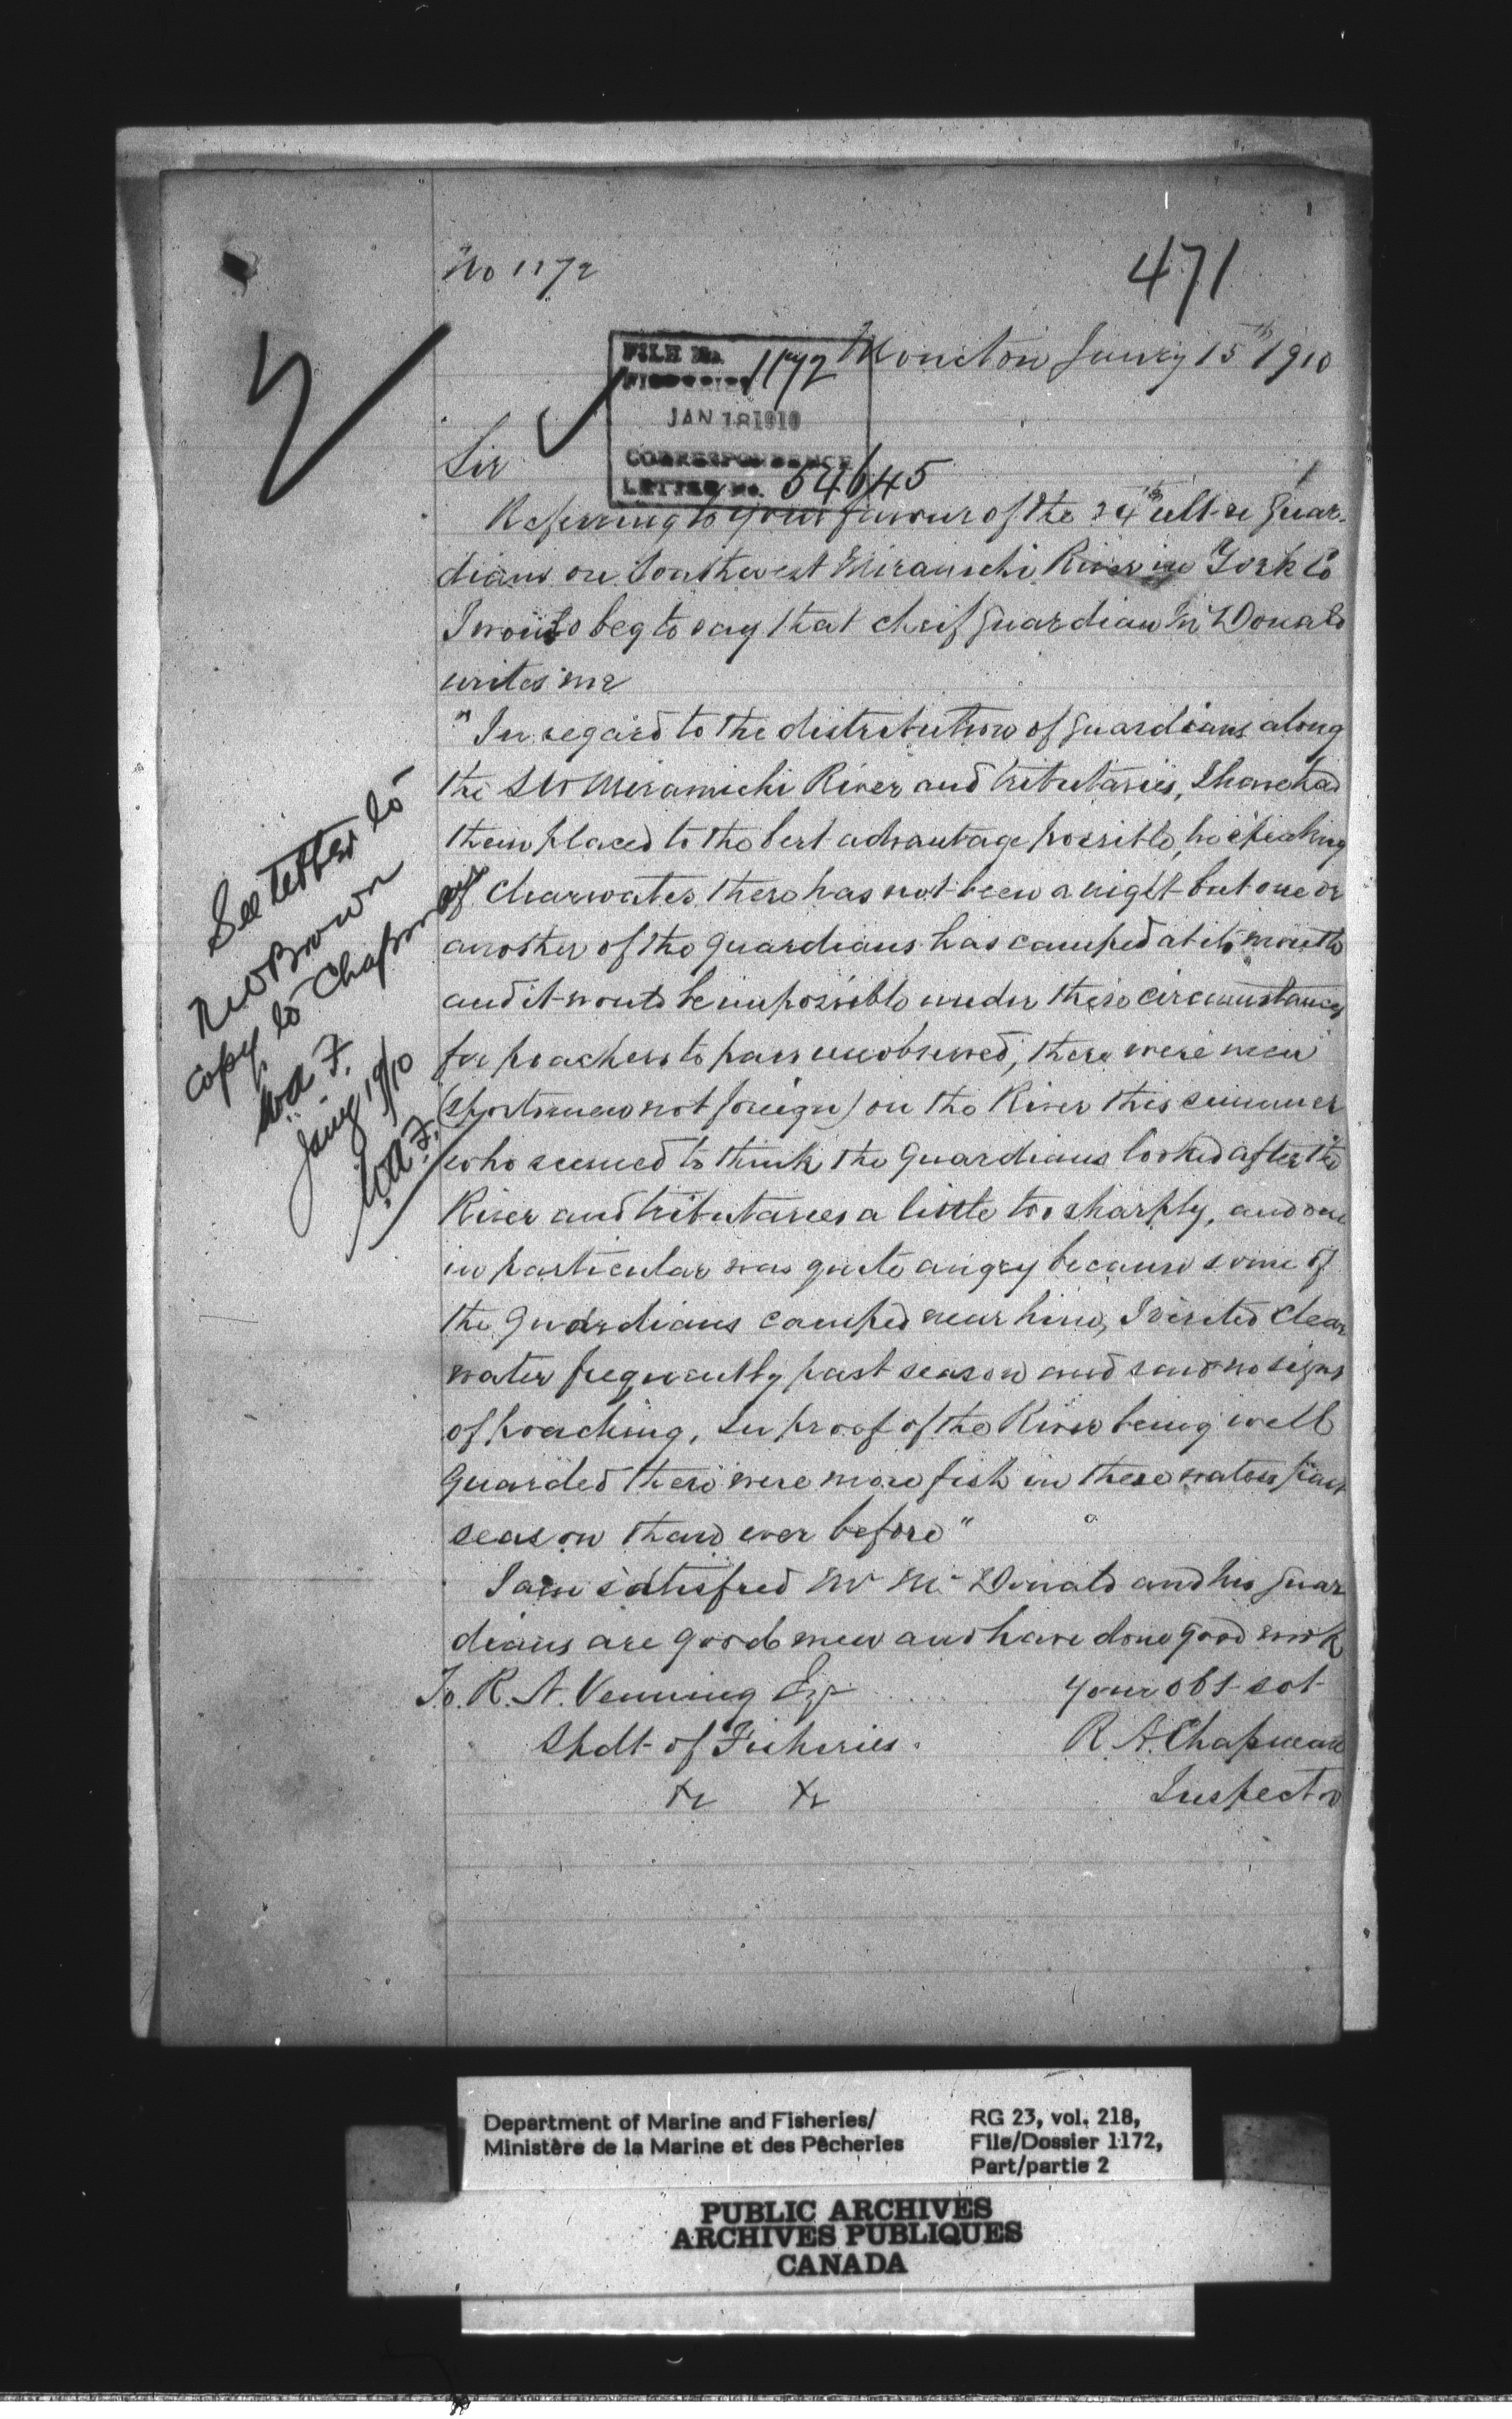 No 1172
471
FILE No.
FISHERIES 1172
JAN 18 1910
CORRESPONDENCE
LETTER No. 54645
Moncton Janry 15th 1910
Sir
Referring to your favour of the 24th ult-re Guar-
dians on Southwest Miramichi River in York Co
I would beg to say that cheif Guardian McDonald
writes me
"In regard to the distribution of Guardians along
the SW Miramichi River and tributaries, I have had
them placed to the best advantage possible, he speaking
of Clearwater there has not been a night but one or
another of the guardians has camped at its mouth
and it would be impossible under these circumstances
for poachers to pass unobserved, there were men
(sportsmen not foreign) on the River this summer
who seemed to think the guardians looked after the
River and tributaries a little too sharply, and one
in particular was quite angry because some of
the Guardians camped near him, I visited Clear
water frequently past season and saw no signs
of poaching, In proof of the River being well
Guarded there were more fish in these waters past
season than ever before"
I am satisfied Mr McDonald and his Guar
dians are good men and have done good work
To. R. N. Venning Esq
your obt sot
Spdt of Fisheries.
R. A. Chapman
Inspector
See letter to
Brown
copy to Chapman
W.A. F.
Jany 19/10
W.A. F.
Department of Marine and Fisheries/
Ministère de la Marine et des Pêcheries
RG 23, vol. 218,
File/Dossier 1172,
Part/partie 2
PUBLIC ARCHIVES
ARCHIVES PUBLIQUES
CANADA